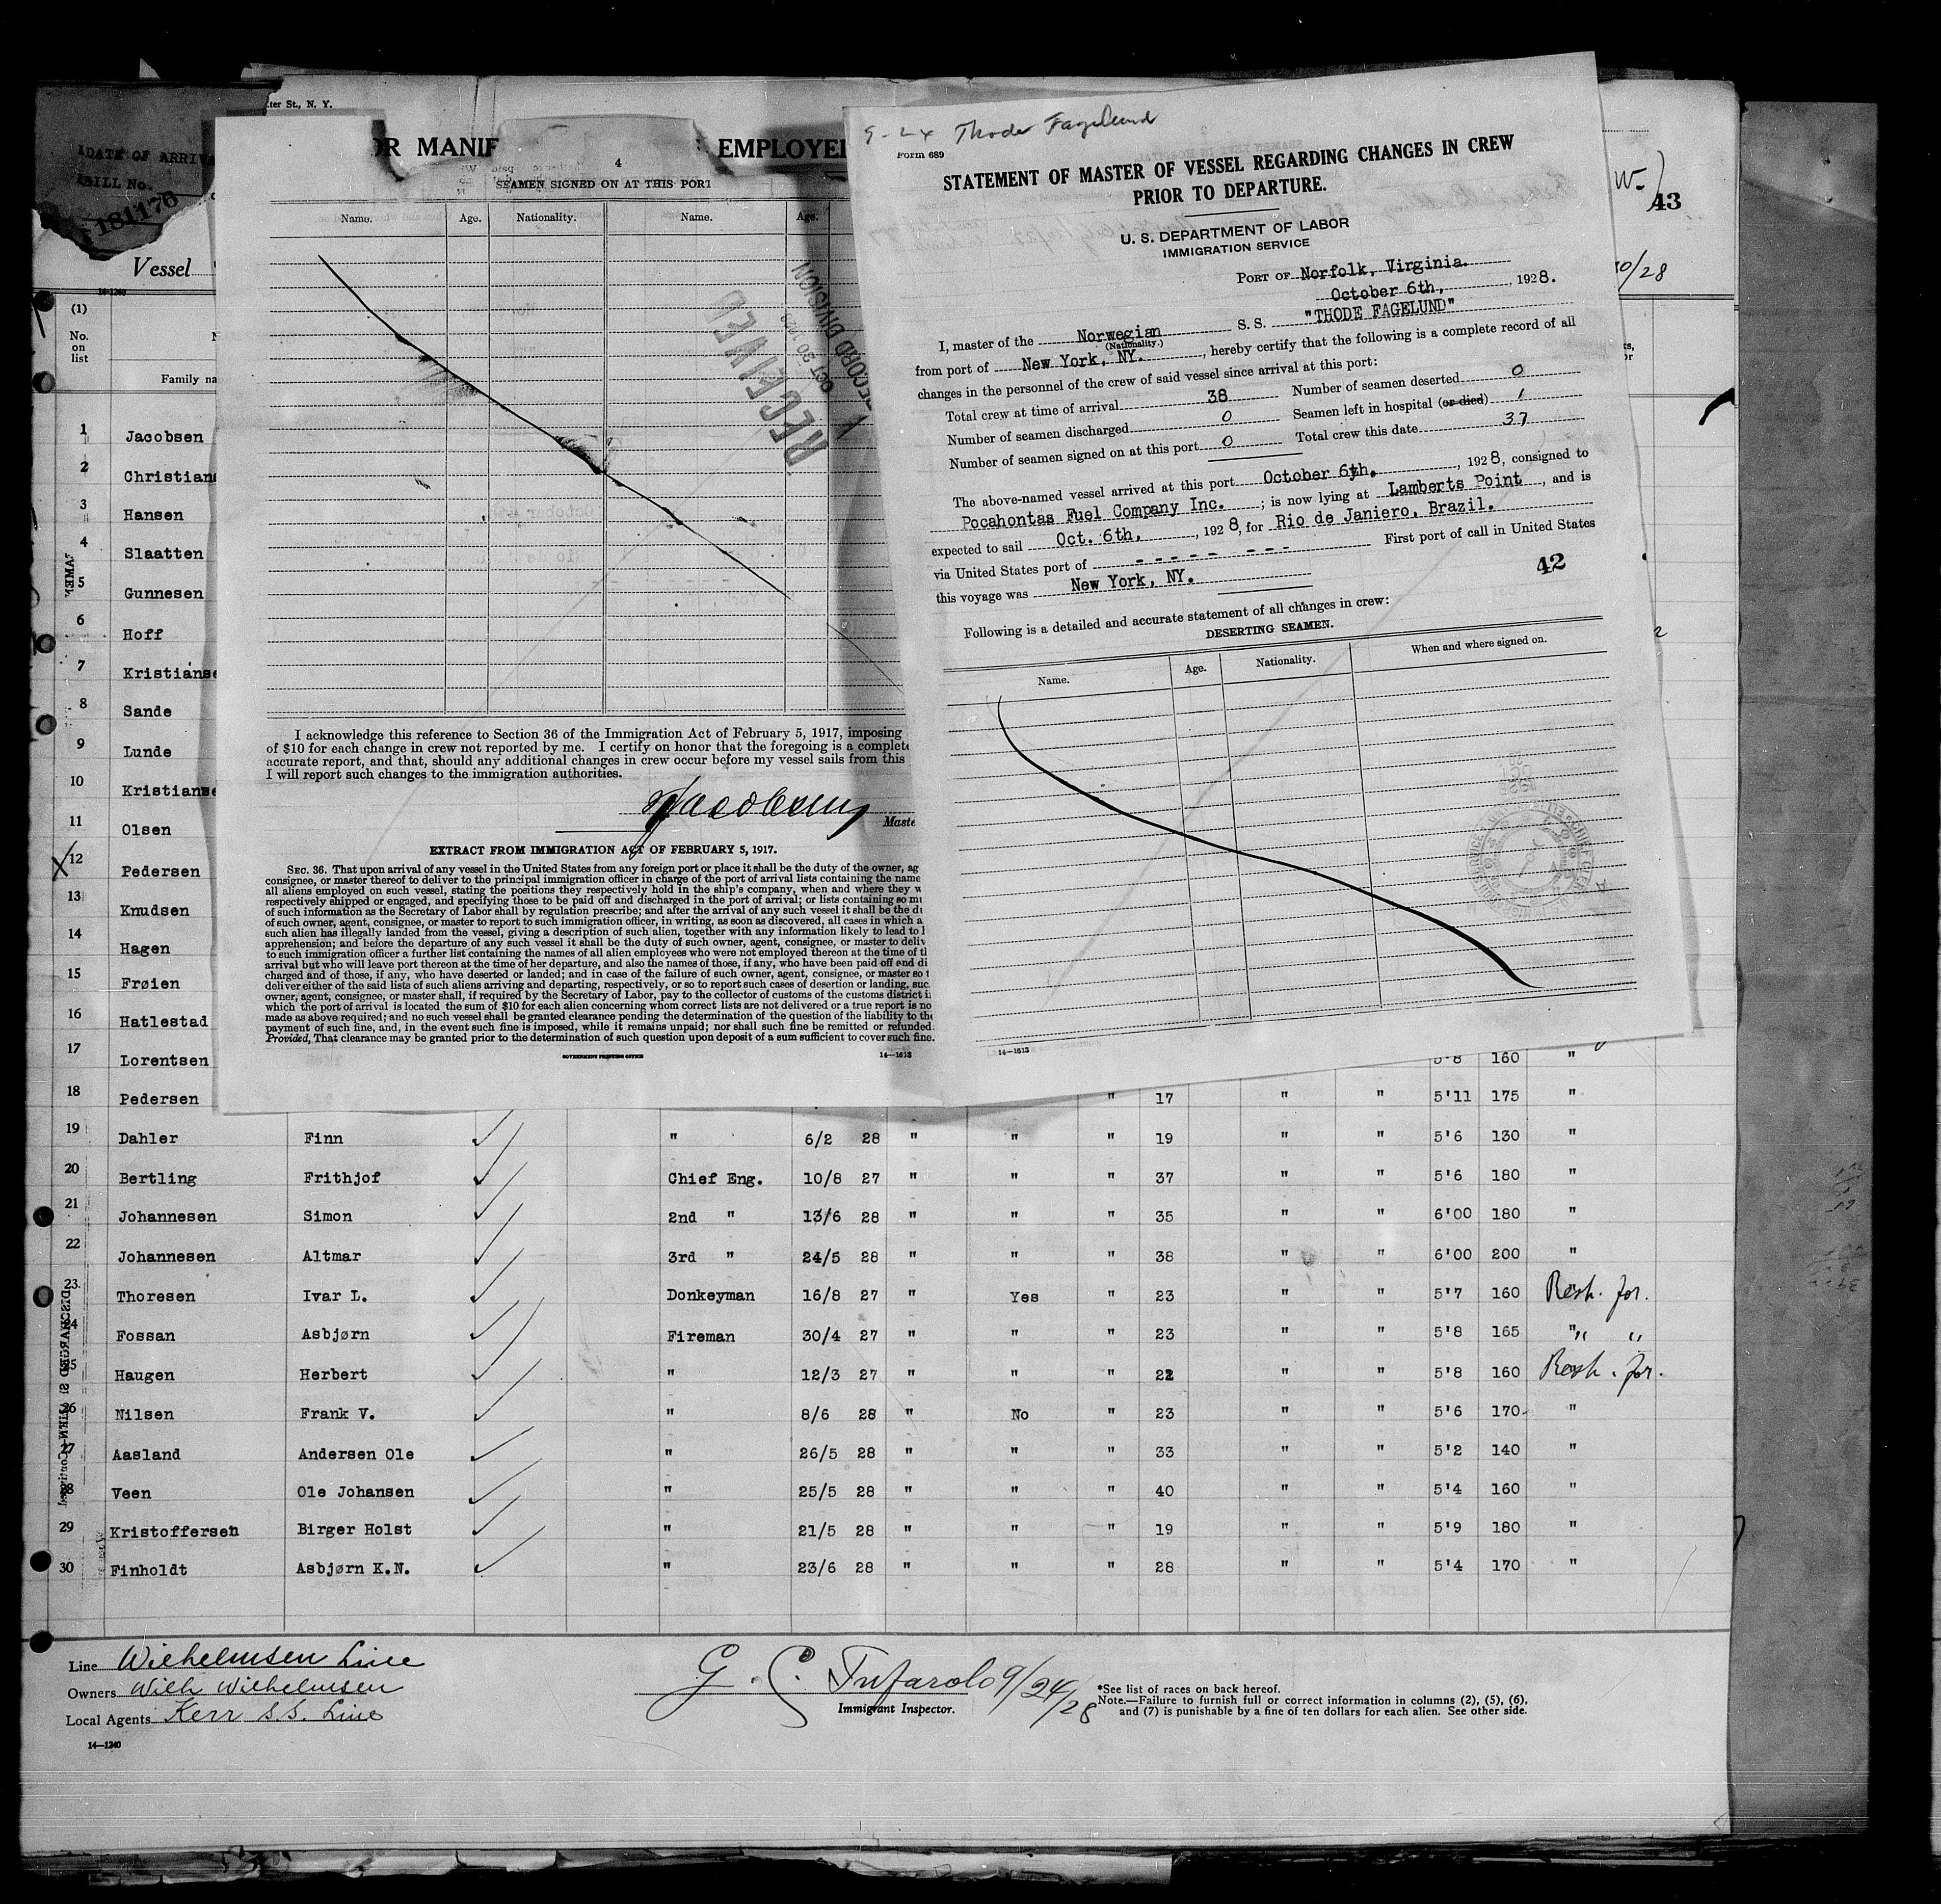 ter St., N. Y.
DATE OF ARRIVA
BILL No.
181176
OR MANIF
EMPLOYE
43
Vessel
10/28
14-1240
(1)
No.
on
list
Family na
4
SEAMEN SIGNED ON AT THIS PORT
Name. Age. Nationality. Name. Age.
RECEIVED
OCT 30
RECORD DIVISION
I acknowledge this reference to Section 36 of the Immigration Act of February 5, 1917, imposing
of $10 for each change in crew not reported by me. I certify on honor that the foregoing is a complete
accurate report, and that, should any additional changes in crew occur before my vessel sails from this
I will report such changes to the immigration authorities.
Jacobsen
Maste
EXTRACT FROM IMMIGRATION ACT OF FEBRUARY 5, 1917.
SEC. 36. That upon arrival of any vessel in the United States from any foreign port or place it shall be the duty of the owner, ag
consignee, or master thereof to deliver to the principal immigration officer in charge of the port of arrival lists containing the name
all aliens employed on such vessel, stating the positions they respectively hold in the ship's company, when and where they w
respectively shipped or engaged, and specifying those to be paid off and discharged in the port of arrival; or lists containing so mu
of such information as the Secretary of Labor shall by regulation prescribe; and after the arrival of any such vessel it shall be the du
of such owner, agent, consignee, or master to report to such immigration officer, in writing, as soon as discovered, all cases in which a
such alien has illegally landed from the vessel, giving a description of such alien, together with any information likely to lead to h
apprehension; and before the departure of any such vessel it shall be the duty of such owner, agent, consignee, or master to deliv
to such immigration officer a further list containing the names of all alien employees who were not employed thereon at the time of th
arrival but who will leave port thereon at the time of her departure, and also the names of those, if any, who have been paid off and di
charged and of those, if any, who have deserted or landed; and in case of the failure of such owner, agent, consignee, or master so t
deliver either of the said lists of such aliens arriving and departing, respectively, or so to report such cases of desertion or landing, suc
owner, agent, consignee, or master shall, if required by the Secretary of Labor, pay to the collector of customs of the customs district i
which the port of arrival is located the sum of $10 for each alien concerning whom correct lists are not delivered or a true report is no
made as above required; and no such vessel shall be granted clearance pending the determination of the question of the liability to the
payment of such fine, and, in the event such fine is imposed, while it remains unpaid; nor shall such fine be remitted or refunded:
Provided, That clearance may be granted prior to the determination of such question upon deposit of a sum sufficient to cover such fine.
GOVERNMENT PRINTING OFFICE
14—1613
9-24 Thode Fagelund
Form 689
STATEMENT OF MASTER OF VESSEL REGARDING CHANGES IN CREW
PRIOR TO DEPARTURE.
U. S. DEPARTMENT OF LABOR
IMMIGRATION SERVICE
PORT OF Norfolk, Virginia.
October 6th, , 1928.
I, master of the Norwegian S. S. "THODE FAGELUND"
(Nationality.)
from port of New York, NY. , hereby certify that the following is a complete record of all
changes in the personnel of the crew of said vessel since arrival at this port:
Total crew at time of arrival 38 Number of seamen deserted 0
Number of seamen discharged 0 Seamen left in hospital (or died) 1
Number of seamen signed on at this port 0 Total crew this date 37
The above-named vessel arrived at this port October 6th. , 1928, consigned to
Pocahontas Fuel Company Inc. ; is now lying at Lamberts Point , and is
expected to sail Oct. 6th. , 1928, for Rio de Janiero, Brazil.
via United States port of - - - - - - - - First port of call in United States
this voyage was New York, NY.
42
Following is a detailed and accurate statement of all changes in crew:
DESERTING SEAMEN.
Name. Age. Nationality. When and where signed on.
14—1613
1 Jacobsen
2 Christians
3 Hansen
4 Slaatten
5 Gunnesen
6 Hoff
7 Kristianse
8 Sande
9 Lunde
10 Kristianse
11 Olsen
X 12 Pedersen
13 Knudsen
14 Hagen
15 Frøien
16 Hatlestad
17 Lorentsen 5'8 160 "
18 Pedersen " 17 " " 5'11 175 "
19 Dahler Finn " 6/2 28 " " " 19 " " 5'6 130 "
20 Bertling Frithjof Chief Eng. 10/8 27 " " " 37 " " 5'6 180 "
21 Johannesen Simon 2nd " 13/6 28 " " " 35 " " 6'00 180 "
22 Johannesen Altmar 3rd " 24/5 28 " " " 38 " " 6'00 200 "
23 Thoresen Ivar L. Donkeyman 16/8 27 " Yes " 23 " " 5'7 160 " Resh. for.
24 Fossan Asbjørn Fireman 30/4 27 " " " 23 " " 5'8 165 " " "
25 Haugen Herbert " 12/3 27 " " " 22 " " 5'8 160 Resh. for.
26 Nilsen Frank V. " 8/6 28 " No " 23 " " 5'6 170 "
27 Aasland Andersen Ole " 26/5 28 " " " 33 " " 5'2 140 "
28 Veen Ole Johansen " 25/5 28 " " " 40 " " 5'4 160 "
29 Kristoffersen Birger Holst " 21/5 28 " " " 19 " " 5'9 180 "
30 Finholdt Asbjørn K.N. " 23/6 28 " " " 28 " " 5'4 170 "
Line Wilhelmsen Line
Owners Wilh Wilhelmsen
Local Agents Kerr S.S. Line
14—1240
G. C. Tufarolo 9/24/28
Immigrant Inspector.
*See list of races on back hereof.
Note.—Failure to furnish full or correct information in columns (2), (5), (6),
and (7) is punishable by a fine of ten dollars for each alien. See other side.